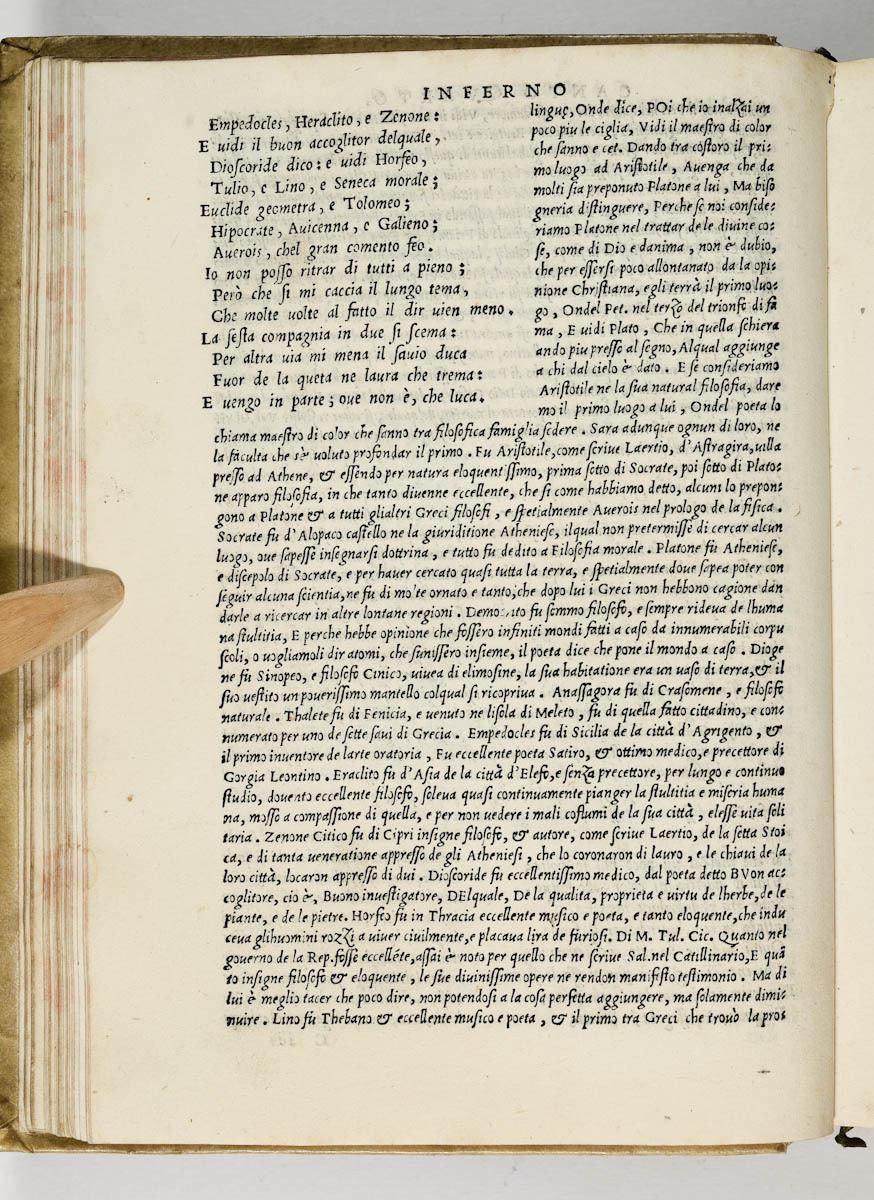 INFERNO
Empedocles, Heraclito, e Zenone:
E uidi il buon accoglitor delquale,
Dioscoride dico: e uidi Horfeo,
Tulio, e Lino, e Seneca morale;
Euclide geometra, e Tolomeo;
Hipocrate, Auicenna, e Galieno;
Auerois, chel gran comento feo.
Io non posso ritrar di tutti a pieno;
Però che si mi caccia il lungo tema,
Che molte uolte al fatto il dir uien meno.
La sesta compagnia in due si scema:
Per altra uia mi mena il sauio duca
Fuor de la queta ne laura che trema:
E uengo in parte; oue non è, che luca.
linguę, Onde dice, POi che io inalzai un
poco piu le ciglia, Vidi il maestro di color
che sanno e cet. Dando tra costoro il pri¬
mo luogo ad Aristotile, Auenga che da
molti sia preponuto Platone a lui, Ma biso
gneria distinguere, Perche se noi conside¬
riamo Platone nel trattar de le diuine co¬
se, come di Dio e danima, non è dubio,
che per essersi poco allontanato da la opi¬
nione Christiana, egli terrà il primo luo¬
go, Ondel Pet. nel terzo del trionfo di fa
ma, E uidi Plato, Che in quella schiera
ando piu presso al segno, Alqual aggiunge
a chi dal cielo è dato. E se consideriamo
Aristotile ne la sua natural filosofia, dare
mo il primo luogo a lui, Ondel poeta lo
chiama maestro di color che sanno tra filosofica famiglia sedere. Sara adunque ognun di loro, ne
la faculta che s'è uoluto profondar il primo. Fu Aristotile, come scriue Laertio, d'Astragira, uilla
presso ad Athene, & essendo per natura eloquentissimo, prima sotto di Socrate, poi sotto di Plato¬
ne apparo filosofia, in che tanto diuenne eccellente, che si come habbiamo detto, alcuni lo prepon¬
gono a Platone & a tutti glialtri Greci filosofi, e spetialmente Auerois nel prologo de la fisica.
Socrate fu d'Alopaco castello ne la giuriditione Atheniese, ilqual non pretermisse di cercar alcun
luogo, oue sapesse insegnarsi dottrina, e tutto fu dedito a Filosofia morale. Platone fu Atheniese,
e discepolo di Socrate, e per hauer cercato quasi tutta la terra, e spetialmente doue sapea poter con
seguir alcuna scientia, ne fu di molte ornato e tanto, che dopo lui i Greci non hebbono cagione dan
darle a ricercar in altre lontane regioni. Democrito fu sommo filosofo, e sempre rideua de lhuma
na stultitia, E perche hebbe opinione che fossero infiniti mondi fatti a caso da innumerabili corpu
scoli, o uogliamoli dir atomi, che sunissero insieme, il poeta dice che pone il mondo a caso. Dioge
ne fu Sinopeo, e filosofo Cinico, uiuea di elimosine, la sua habitatione era un uaso di terra, & il
suo uestito un pouerissimo mantello colqual si ricopriua. Anassagora fu di Crasomene, e filosofo
naturale. Thalete fu di Fenicia, e uenuto ne lisola di Meleto, fu di quella fatto cittadino, e con¬
numerato per uno de sette saui di Grecia. Empedocles fu di Sicilia de la città d'Agrigento, &
il primo inuentore de larte oratoria, Fu eccellente poeta Satiro, & ottimo medico, e precettore di
Gorgia Leontino. Eraclito fu d'Asia de la città d'Efeso, e senza precettore, per lungo e continuo
studio, douento eccellente filosofo, soleua quasi continuamente pianger la stultitia e miseria huma
na, mosso a compassione di quella, e per non uedere i mali costumi de la sua città, elesse uita soli
taria. Zenone Citico fu di Cipri insigne filosofo, & autore, come scriue Laertio, de la setta Stoi
ca, e di tanta ueneratione appresso de gli Atheniesi, che lo coronaron di lauro, e le chiaui de la
loro città, locaron appresso di dui. Dioscoride fu eccellentissimo medico, dal poeta detto BVon ac¬
coglitore, cio è, Buono inuestigatore, DElquale, De la qualita, proprieta e uirtu de lherbe, de le
piante, e de le pietre. Horfeo fu in Thracia eccellente musico e poeta, e tanto eloquente, che indu
ceua glihuomini rozzi a uiuer ciuilmente, e placaua lira de furiosi. Di M. Tul. Cic. Quanto nel
gouerno de la Rep. fosse eccellēte, assai è noto per quello che ne scriue Sal. nel Catillinario, E quā
to insigne filosofo & eloquente, le sue diuinissime opere ne rendon manifesto testimonio. Ma di
lui è meglio tacer che poco dire, non potendosi a la cosa perfetta aggiungere, ma solamente dimi¬
nuire. Lino fu Thebano & eccellente musico e poeta, & il primo tra Greci che trouò la pros¬